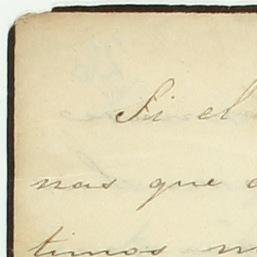 Si el
nas que
timos